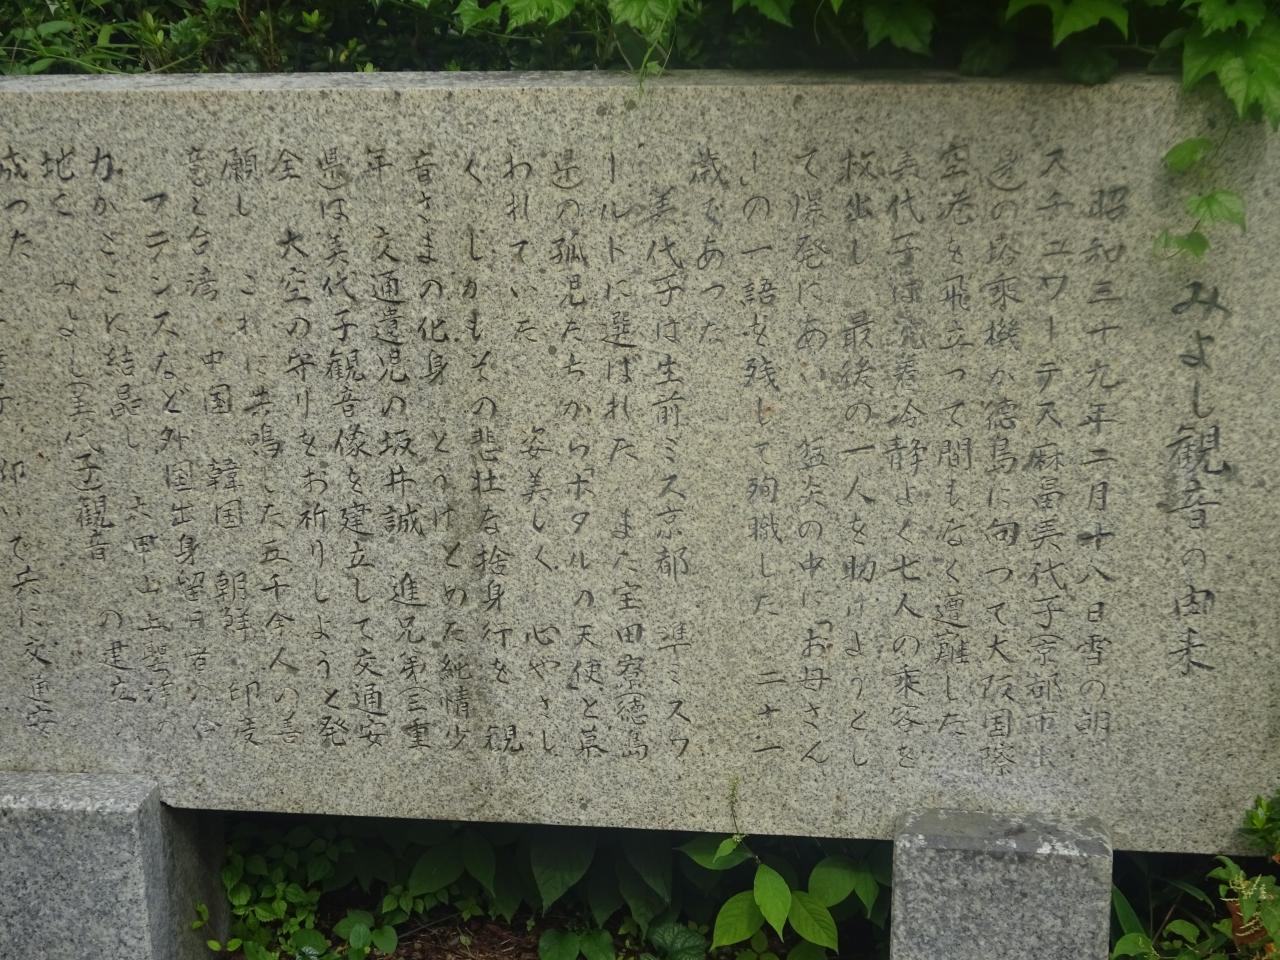 みよし観音の由来
昭和三十九年二月十八日雪の朝
スチュワーデス麻畠美代子(京都市出
の搭乗機が徳島に向つて大阪国際
空港を飛立つて間もなく遭難した
美代子は沈着冷静よく七人の乗客を
救出し 最後の一人を助けようとし
て爆発にあい 猛炎の中に「お母さん
」の一語を残して殉職した 二十一
歳であった
美代子は生前ミス京都 準ミスワ
ールドに選ばれた また宝田寮(徳島
県)の孤児たちから「ホタルの天使」と慕
われていた 姿美しく 心やさし
く しかもその悲壮な捨身行を 観
音さまの化身 とうけとめた純情少
年 交通遺児の坂井誠 進兄弟(三重
県)は美代子観音像を建立して交通安
全 大空の守りをお祈りしようと発
願し これに共鳴した五千余人の善
意と台湾 中国 韓国 朝鮮 印度
フランスなど外国出身留日者の合
力がここに結晶し 六甲山上聖洋の
地を みよし(美代子)観音 の建立
成った
で共に交通安